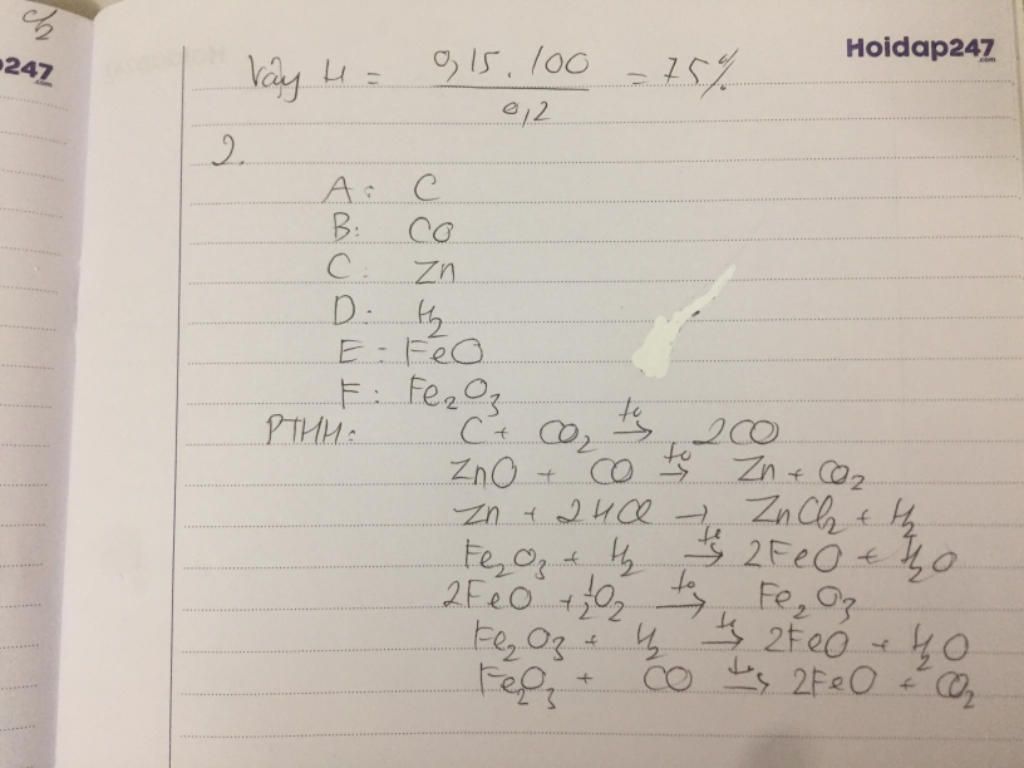 C/2
247
Hoidap247
.com
Vậy H = 0,15.100 / 0,2 = 75%
2.
A: C
B: CO
C: Zn
D: H2
E: FeO
F: Fe2O3
PTHH: C + CO2 to→ 2CO
ZnO + CO to→ Zn + CO2
Zn + 2HCl → ZnCl2 + H2
Fe2O3 + H2 to→ 2FeO + H2O
2FeO + 1/2O2 to→ Fe2O3
Fe2O3 + H2 to→ 2FeO + H2O
Fe2O3 + CO to→ 2FeO + CO2